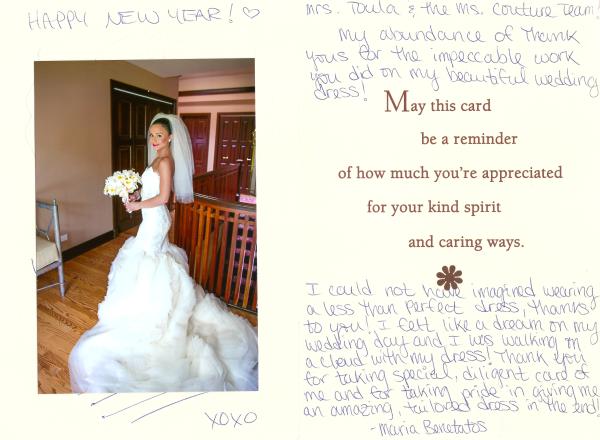 HAPPY NEW YEAR! ♡
XOXO
Mrs. Toula & the Ms. Couture Team!
My abundance of thank
yous for the impeccable work
you did on my beautiful wedding
dress!
May this card
be a reminder
of how much you're appreciated
for your kind spirit
and caring ways.
I could not have imagined wearing
a less than perfect dress, thanks
to you! I felt like a dream on my
wedding day and I was walking on
a cloud with my dress! Thank you
for taking special, diligent care of
me and for taking pride in giving me
an amazing, tailored dress in the end!
-Maria Benetatos